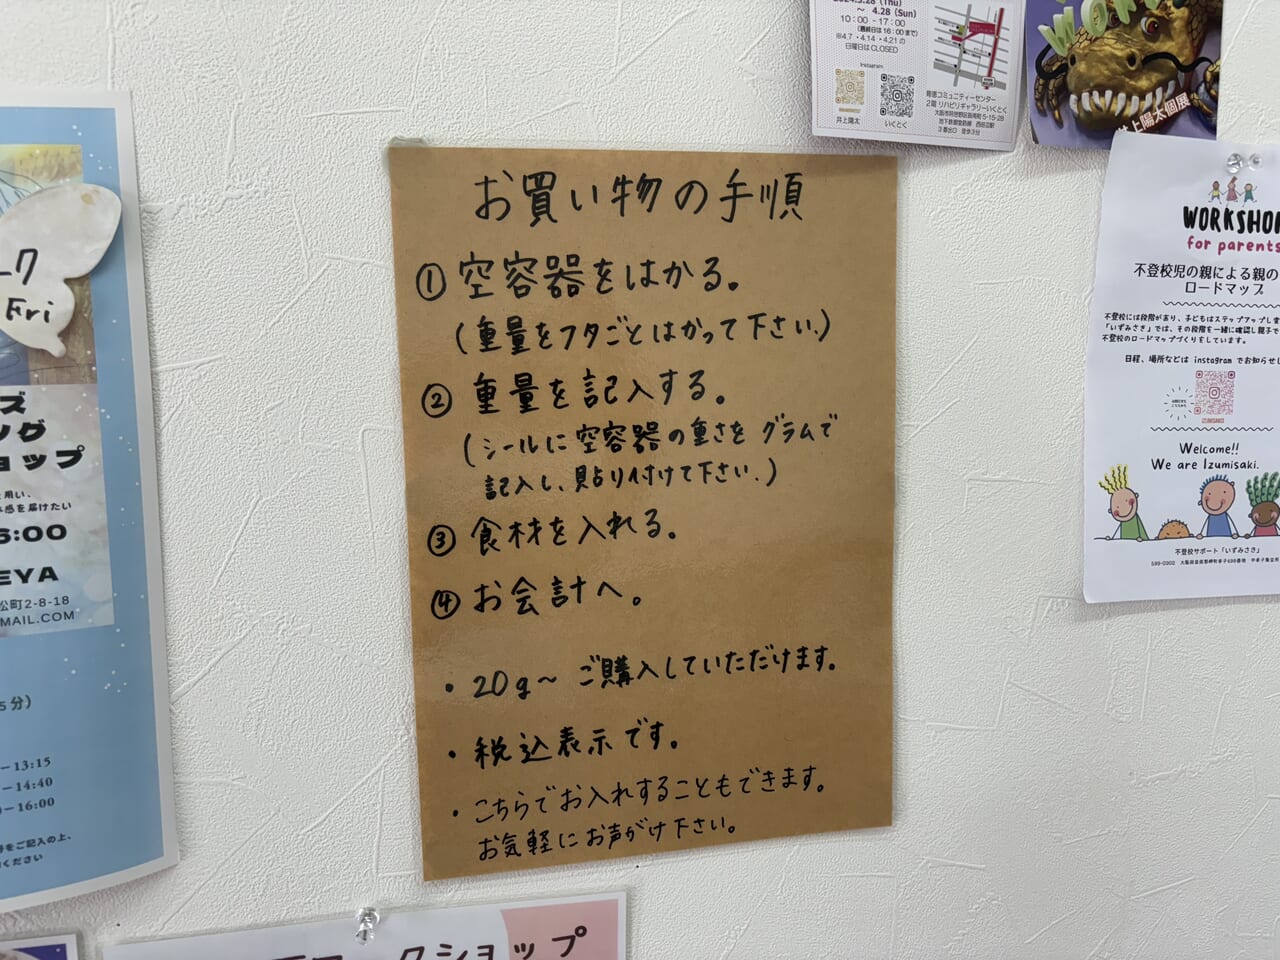 お買い物の手順
① 空容器をはかる。
(重量をフタごとはかって下さい。)
② 重量を記入する。
(シールに空容器の重さをグラムで
記入し、貼り付けて下さい。)
③ 食材を入れる。
④ お会計へ。
・20g～ ご購入していただけます。
・税込表示です。
・こちらでお入れすることもできます。
お気軽にお声がけ下さい。
～ 4.28 (Sun)
10:00 - 17:00
(最終日は16:00まで)
※4.7・4.14・4.21の
日曜日はCLOSED
Instagram
井上陽太
いくとく
育徳コミュニティーセンター
2階 リハビリギャラリーいくとく
3番出口 徒歩3分
井上陽太個展
WORKSHOP
for parents
不登校児の親による親の
ロードマップ
不登校には段階があり、子どもはステップアップしま
「いずみさき」では、その段階を一緒に確認し親子で
不登校のロードマップづくりをしています。
日程、場所などは instagram でお知らせし
Welcome!!
We are Izumisaki.
不登校サポート「いずみさき」
ーク
Fri
ズ
ング
ョップ
を用い、
感を届けたい
6:00
EYA
松町2-8-18
MAIL.COM
5分)
－13:15
－14:40
－16:00
号をご記入の上、
ください
ークショップ